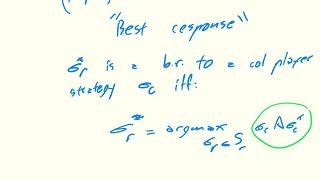 "Best response"
σ*r is a b.r. to a col player
strategy σc iff:
σ*r = argmax σr A σ*c
σr ∈ Sr